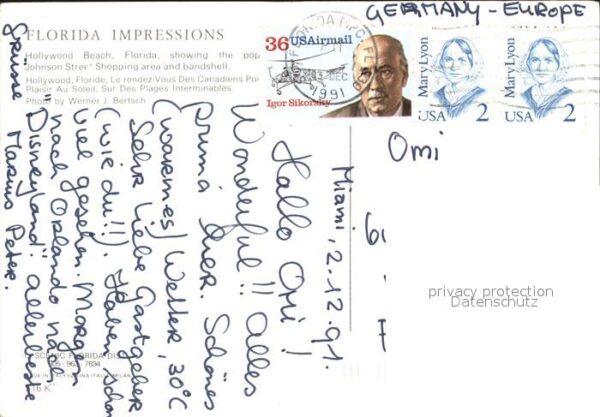 FLORIDA IMPRESSIONS
Hollywood Beach, Florida, showing the pop
Johnson Street Shopping area and bandshell.
Hollywood, Floride, Le rendez-Vous Des Canadiens Po
Plaisir Au Soleil, Sur Des Plages Interminables.
Photo by Werner J. Bertsch
36 USAirmail
Igor Sikorsky
DEC
1991
Mary Lyon
USA 2
Mary Lyon
USA 2
GERMANY - EUROPE
Omi
Miami, 2.12.91.
Hallo Omi!
Wonderful!! Alles
prima hier. Schönes
(warmes) Wetter, 30°C
Sehr liebe Gastgeber
(wie du!!). Haben schon
viel gesehen. Morgen
nach Orlando nach
"Disneyland". Allerbeste
Grüsse
Marius Peter.
SCENIC FLORIDA DIS
7694
16 K
privacy protection
Datenschutz